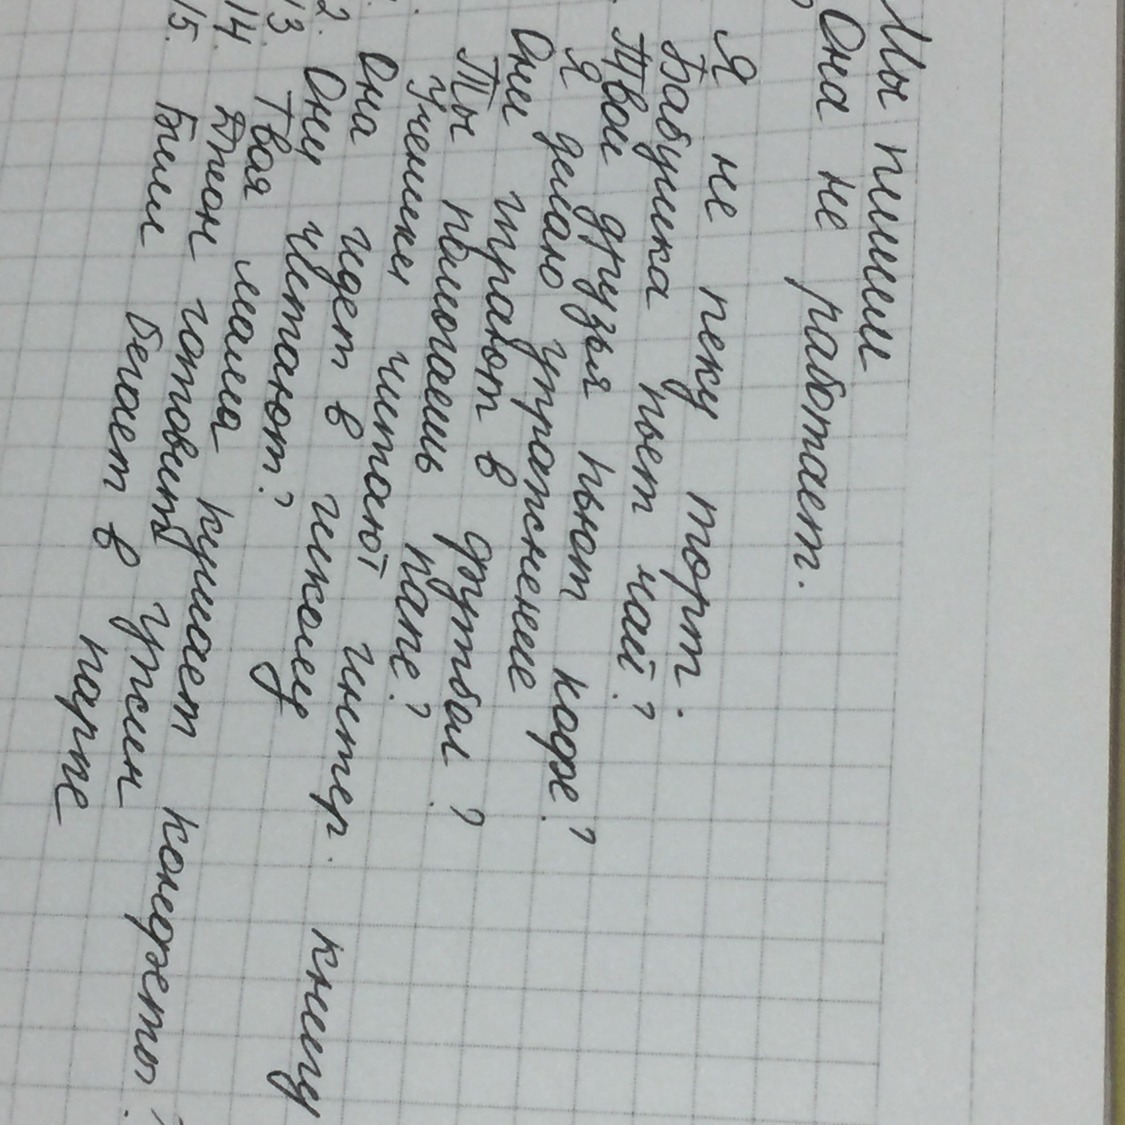 Мы пишем
Она не работает.
Я не пеку торт.
Бабушка пьет чай?
Твои друзья пьют кофе?
Я делаю упражнение
Они играют в футбол?
Ты помогаешь папе?
Ученики читают интер. книгу
Она идет в школу
2. Они читают?
13. Твоя мама кушает конфеты?
14. Джон готовит ужин
15. Билл бегает в парке